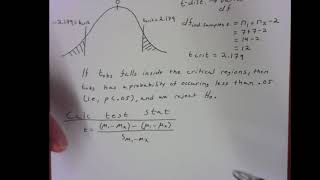 t-dist.
0
df
-2.179 = tcrit
tcrit = 2.179
df ind. samples t = n₁ + n₂ - 2
= 7+7-2
= 14-2
= 12
tcrit = 2.179
If tobs falls inside the critical regions, then
tobs has a probability of occuring less than .05
(i.e., p<.05), and we reject H₀.
Calc test stat
t = (M₁-M₂) - (μ₁-μ₂)
S M₁-M₂